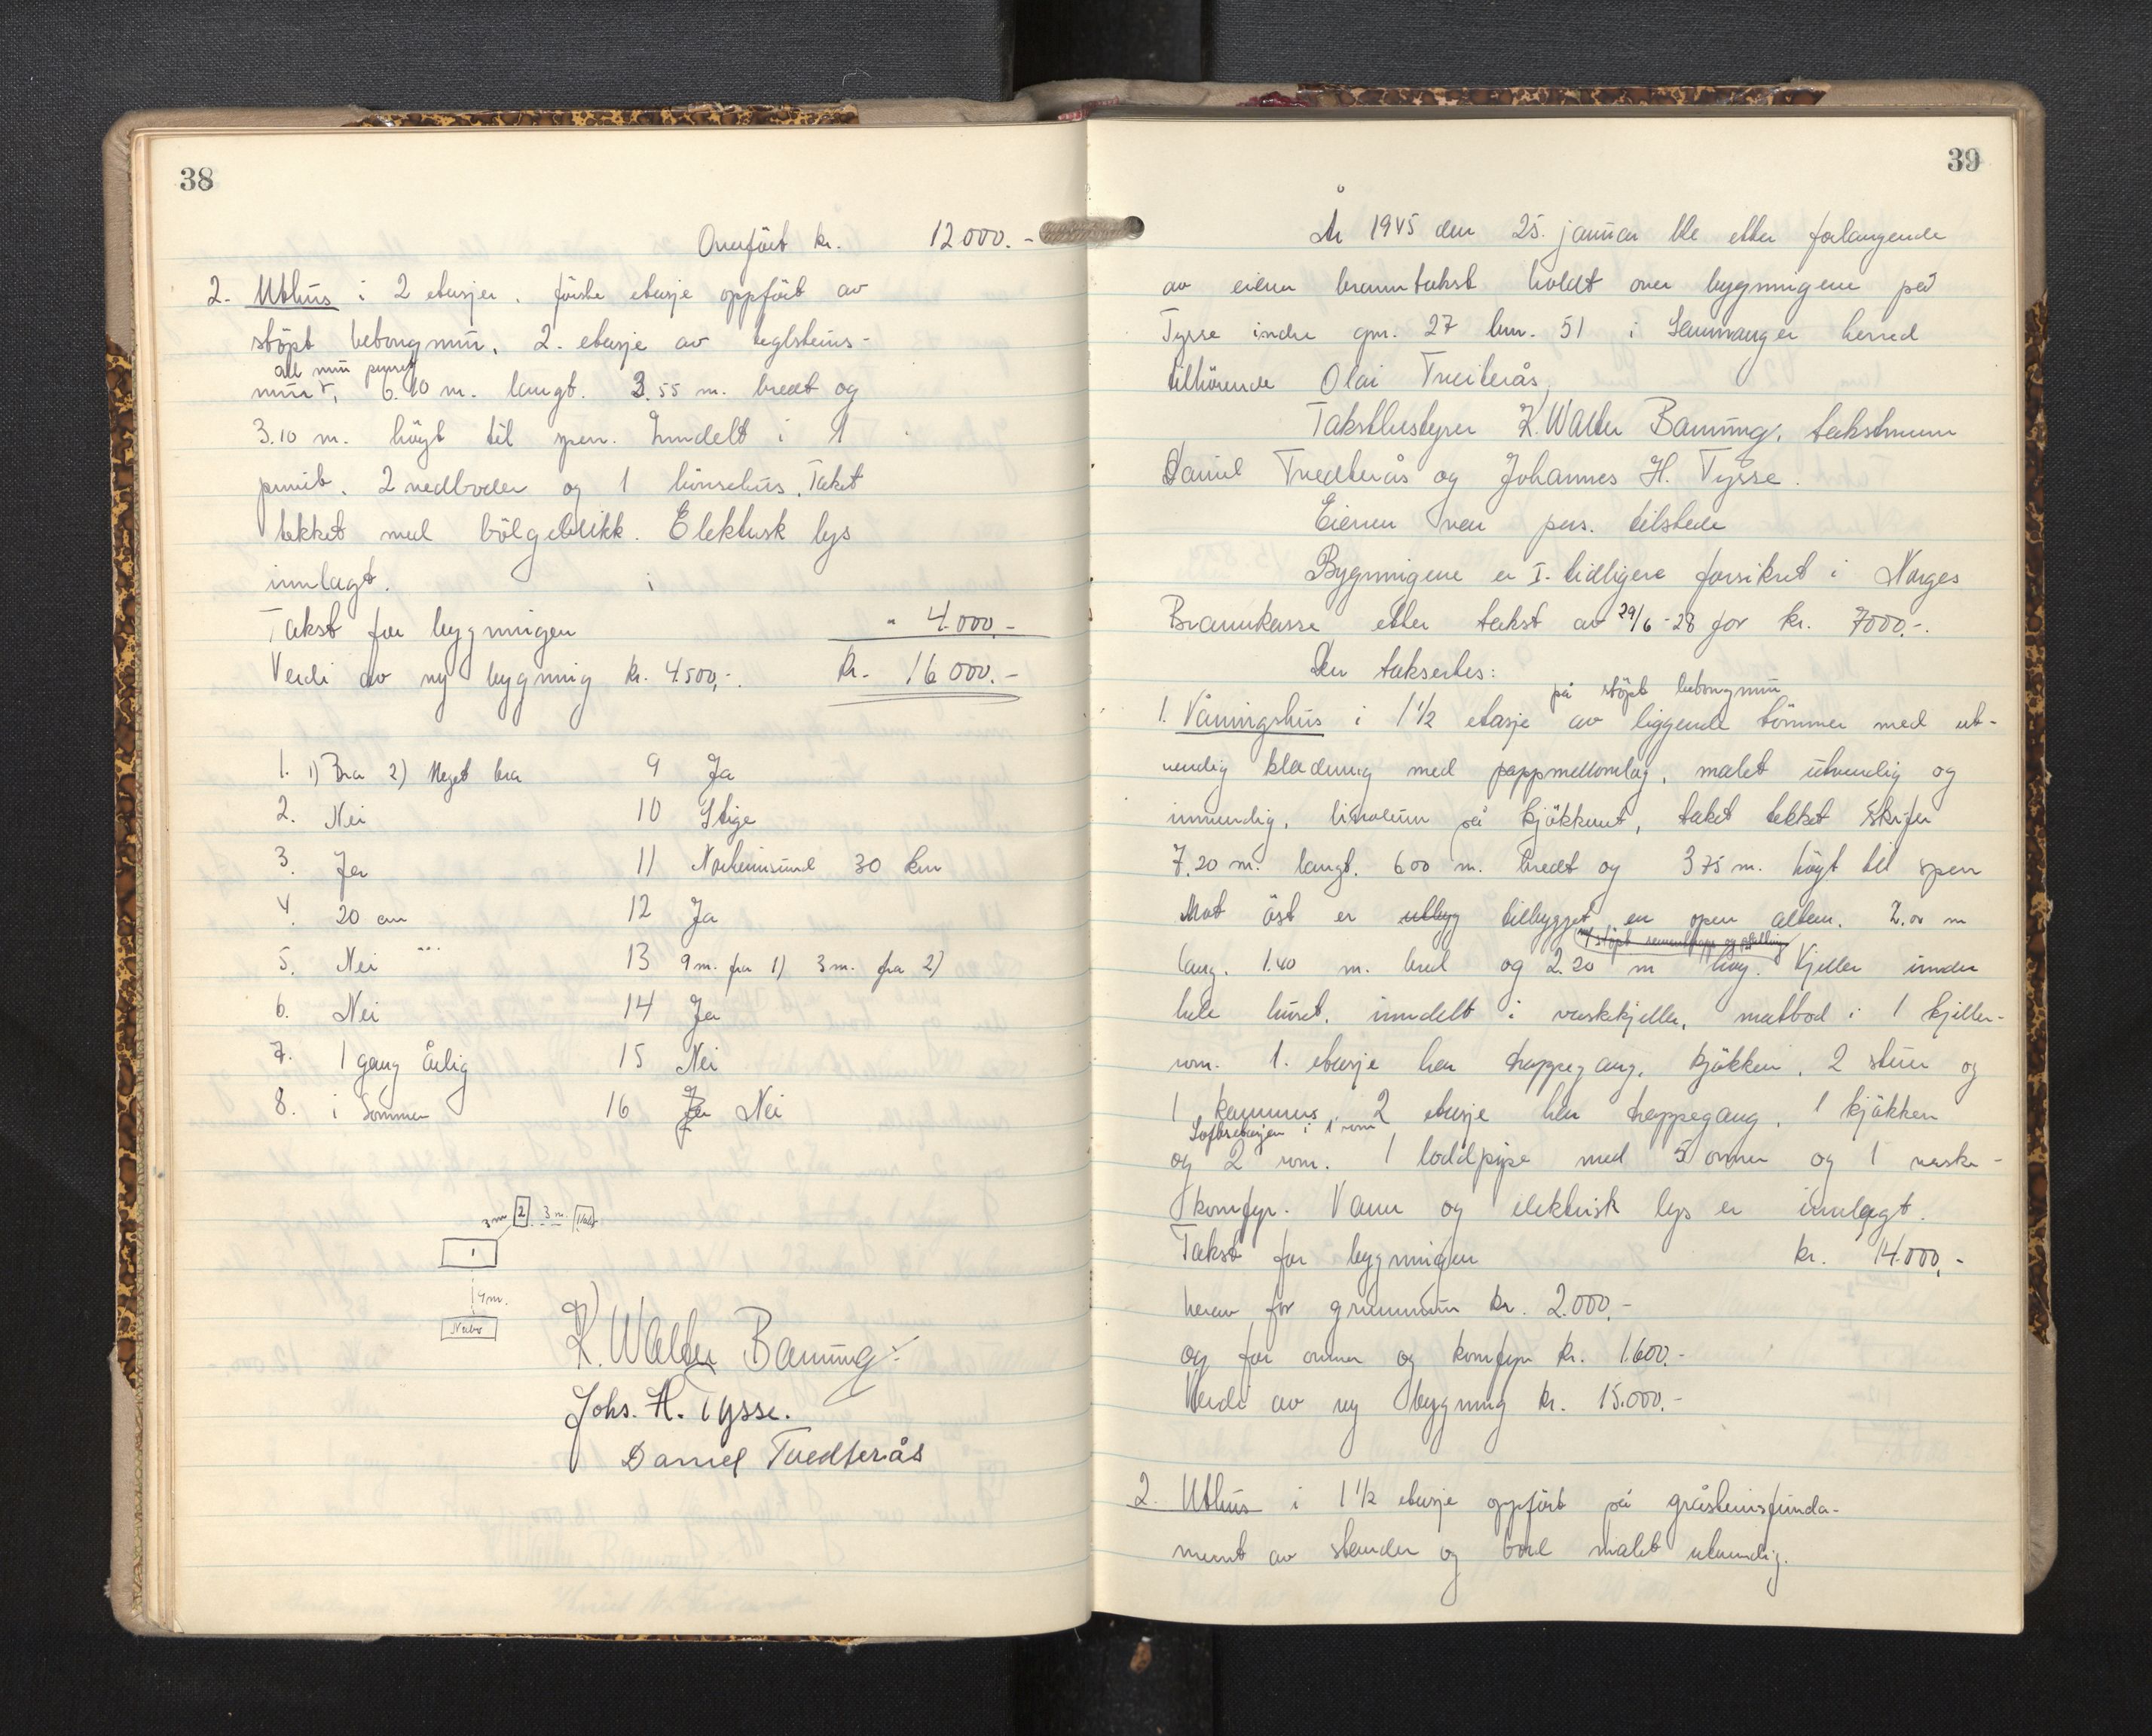 38
Overført kr. 12000.-
2. Uthus i 2 etasjer. første etasje oppført av
støpt betongmur, 2. etasje av teglsteins-
all mur pusset
mur, 6.10 m. langt. 3.55 m. bredt og
3.10 m. høgt til sperr. Inndelt i 1
privit. 2 vedboder og 1 hønsehus. Taket
tekket med bølgeblikk. Elektrisk lys
innlagt.
Takst for bygningen " 4.000,-
Verdi av ny bygning kr. 4500,-. kr. 16000.-
1. 1) Bra 2) Meget bra 9 Ja
2. Nei 10 Stige
3. Ja 11 Norheimsund 30 km
4. 20 cm 12 Ja
5. Nei 13 9 m. fra 1) 3 m. fra 2)
6. Nei 14 Ja
7. 1 gang årlig 15 Nei
8. i Sommer 16 Ja Nei
3 m 2 3 m. Nabo
1
9 m.
Nabo
K. Walter Banning.
Johs. H. Tysse.
Daniel Tvedterås
39
År 1945 den 25. januar ble etter forlangende
av eieren branntakst holdt over bygningene på
Tysse indre gnr. 27 bnr. 51 i Samnanger herred
tilhørende Olai Tveiterås.
Takstbestyrer K. Walter Banning, takstmenn
Daniel Tvedterås og Johannes H. Tysse.
Eieren var pers. tilstede
Bygningene er I. tidligere forsikret i Norges
Brannkasse etter takst av 29/6-28 for kr. 7000.-.
Der takseredes:
på støpt betongmur
1. Våningshus i 1 1/2 etasje av liggende tømmer med ut-
vendig kledning med pappmellomlag, malet utvendig og
innvendig, linoleum på kjøkkenet, taket tekket skifer
7.20 m. langt. 6.00 m. bredt og 3.75 m. høgt til sperr
Mot øst er utbyg tilbygget en open altan. 2.00 m
m/ støpt sementtrapp og
lang. 1.40 m. bred og 2.20 m høg. Kjeller under
hele huset, inndelt i vaskekjeller, matbod i 1 kjeller-
rom. 1. etasje har trappegang, kjøkken, 2 stuer og
1 kammers. 2 etasje har trappegang, 1 kjøkken
Loftsetasjen i 1 rom
og 2 rom. 1 loddpipe med 5 ovner og 1 vaske-
komfyr. Vann og elektrisk lys er innlagt.
Takst for bygningen kr. 14.000,-
herav for grunnmur kr. 2.000,-
og for ovner og komfyr kr. 1.600.-
Verdi av ny bygning kr. 15.000.-
2. Uthus i 1 1/2 etasje oppført på gråsteinsfunda-
ment av stender og bord malet utvendig.